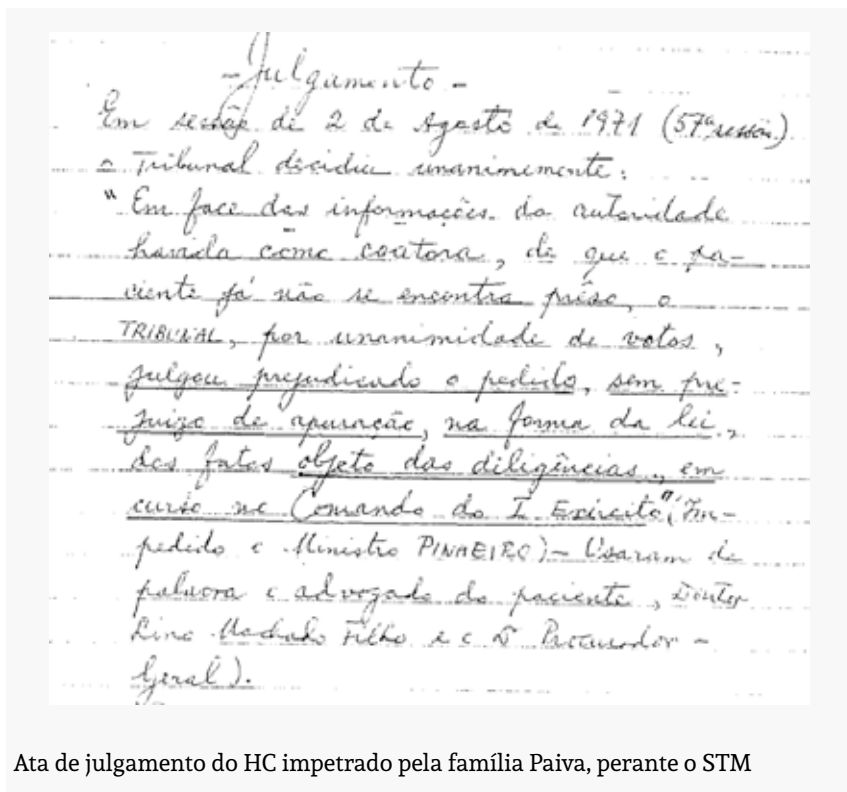 - Julgamento -
Em sessão de 2 de Agosto de 1971 (57ª sessão)
o Tribunal decidiu unanimemente:
" Em face das informações da autoridade
havida como coatora, de que o pa-
ciente já não se encontra prêso, o
TRIBUNAL, por unanimidade de votos,
julgou prejudicado o pedido, sem pre-
juizo de apuração, na forma da lei,
dos fatos objeto das diligências, em
curso no Comando do I Exército" (Im-
pedido o Ministro PINHEIRO) - Usaram da
palavra o advogado do paciente, Doutor
Lino Machado Filho e o Dr Procurador -
Geral).
Ata de julgamento do HC impetrado pela família Paiva, perante o STM